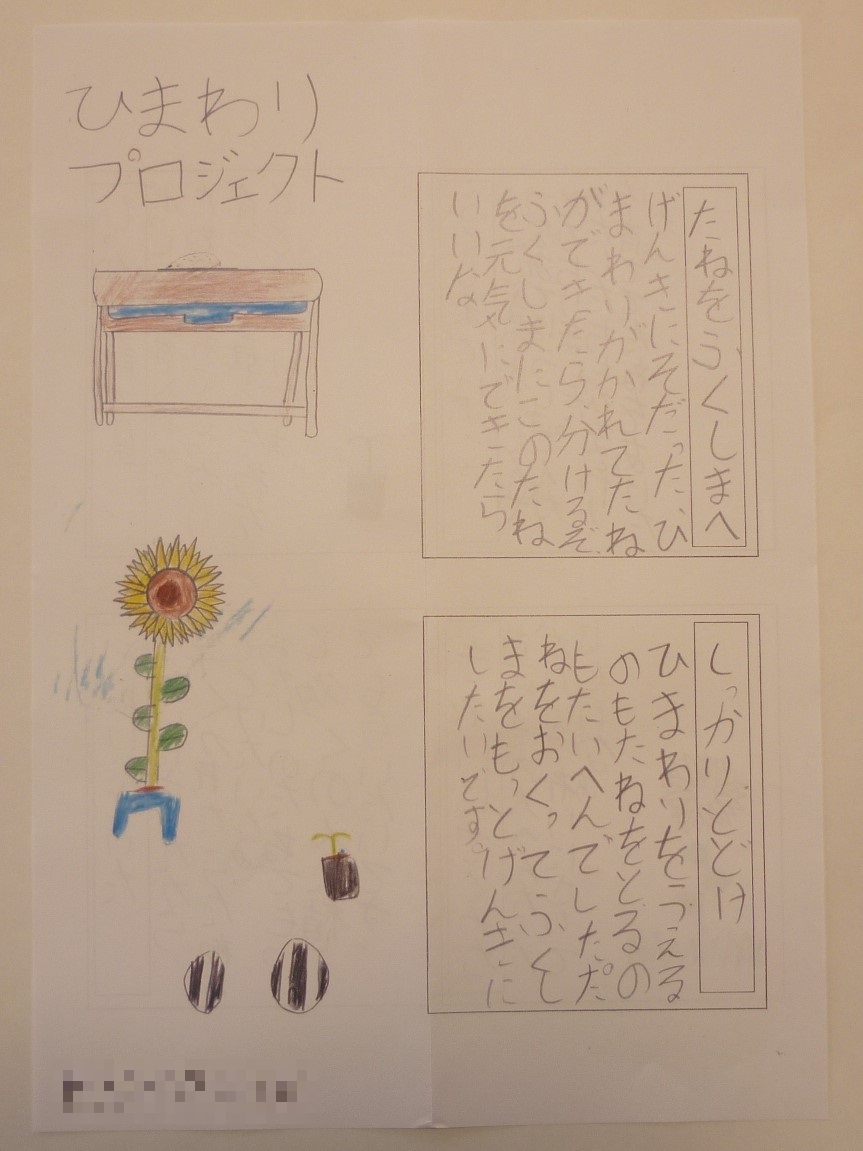 ひまわり
プロジェクト
たねをふくしまへ
げんきにそだった、ひ
まわりがかれてたね
ができたら、分けるぞ。
ふくしまにこのたね
を元気にできたら
いいな。
しっかりとどけ
ひまわりをうえる
のもたねをとるの
もたいへんでしただ
ねをおくってふくし
まをもっとげんきに
したいです。